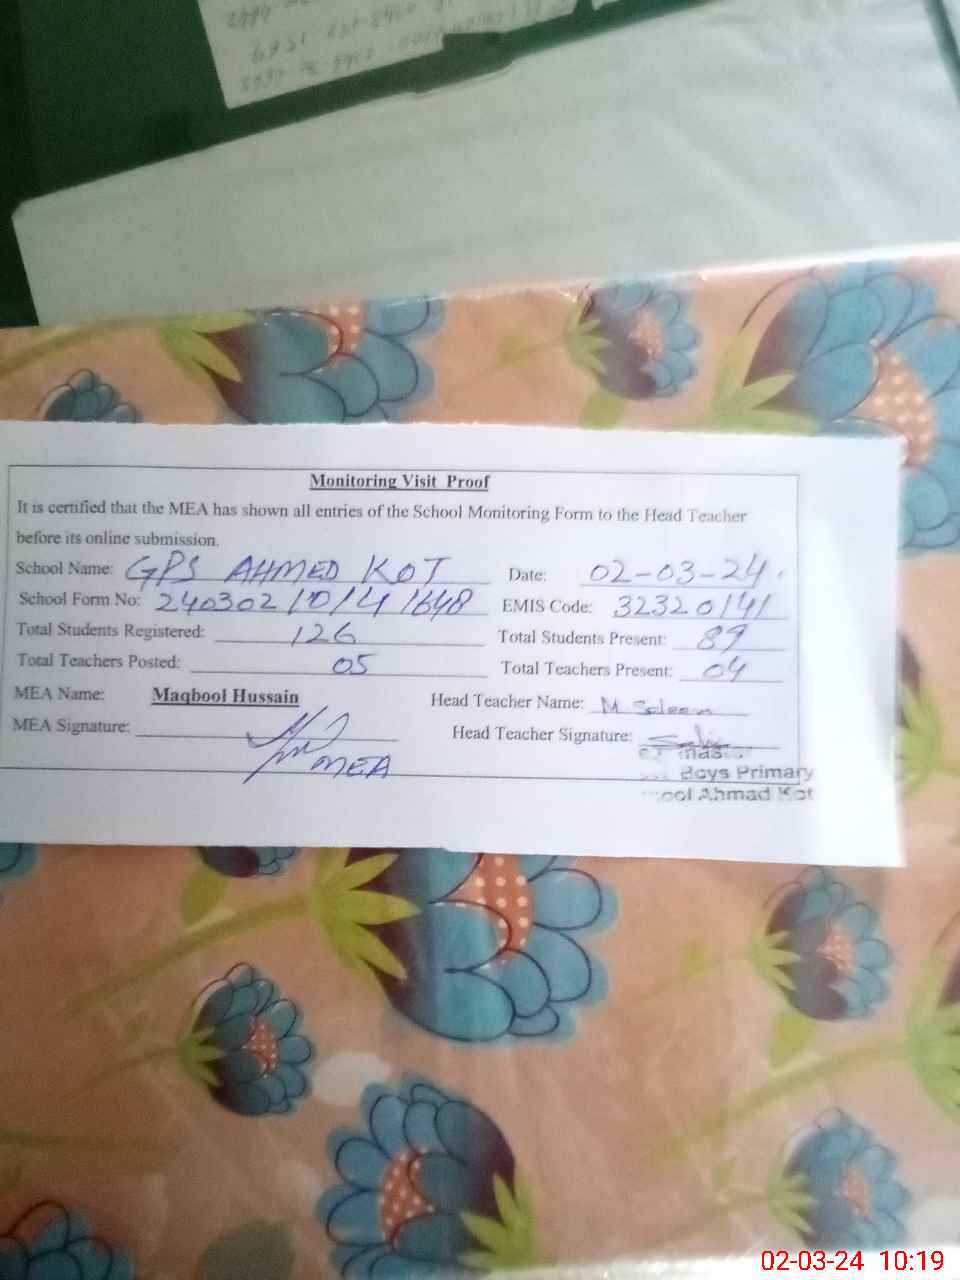 Monitoring Visit Proof
It is certified that the MEA has shown all entries of the School Monitoring Form to the Head Teacher
before its online submission.
School Name: GPS AHMED KOT Date: 02-03-24.
School Form No: 240302/10/41648 EMIS Code: 32320141
Total Students Registered: 126 Total Students Present: 89
Total Teachers Posted: 05 Total Teachers Present: 04
MEA Name: Maqbool Hussain Head Teacher Name: M Saleem
MEA Signature: Head Teacher Signature:
MEA
master
Boys Primary
ool Ahmad Kot
02-03-24 10:19